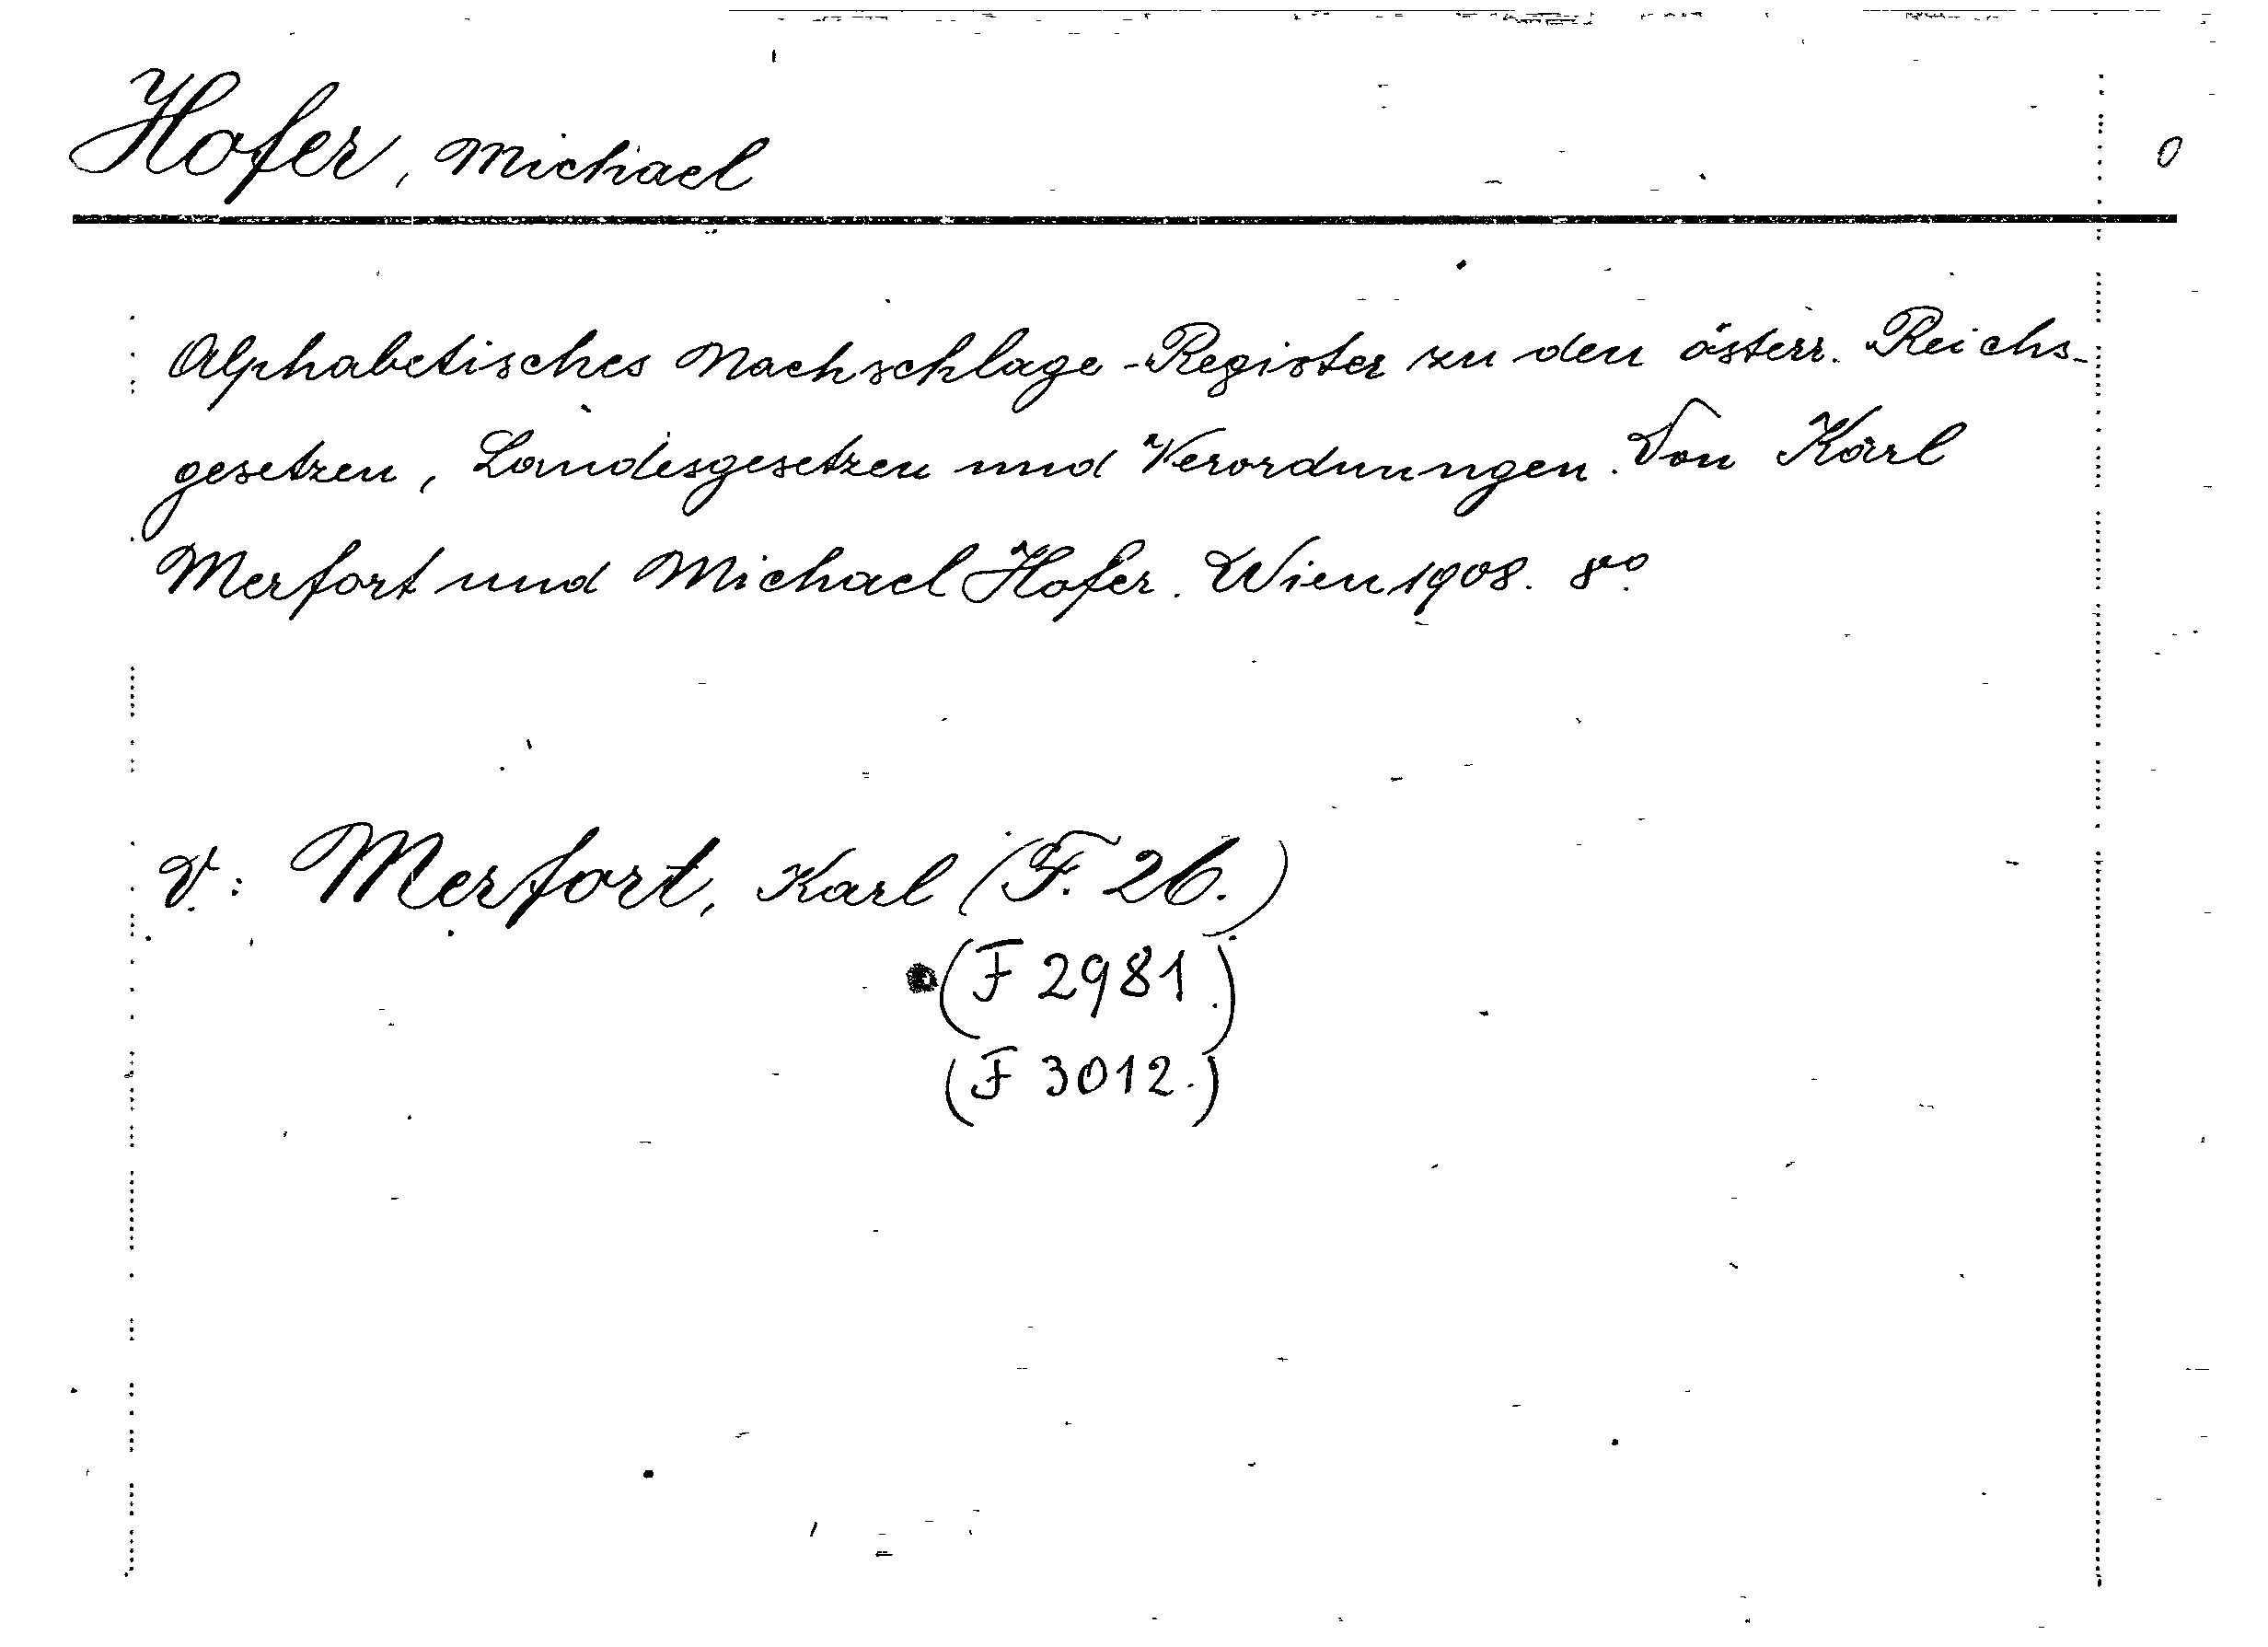 Hofer, Michael 0
Alphabetisches Nachschlage-Register zu den österr. Reichs-
gesetzen, Landesgesetzen und Verordnungen. Von Karl
Merfort und Michael Hofer. Wien 1908. 8vo.
V: Merfort, Karl (F. 26.)
(F 2981.)
(F 3012.)